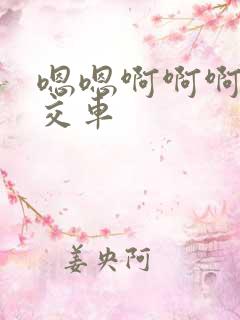 嗯嗯啊啊啊
交车
姜央阿